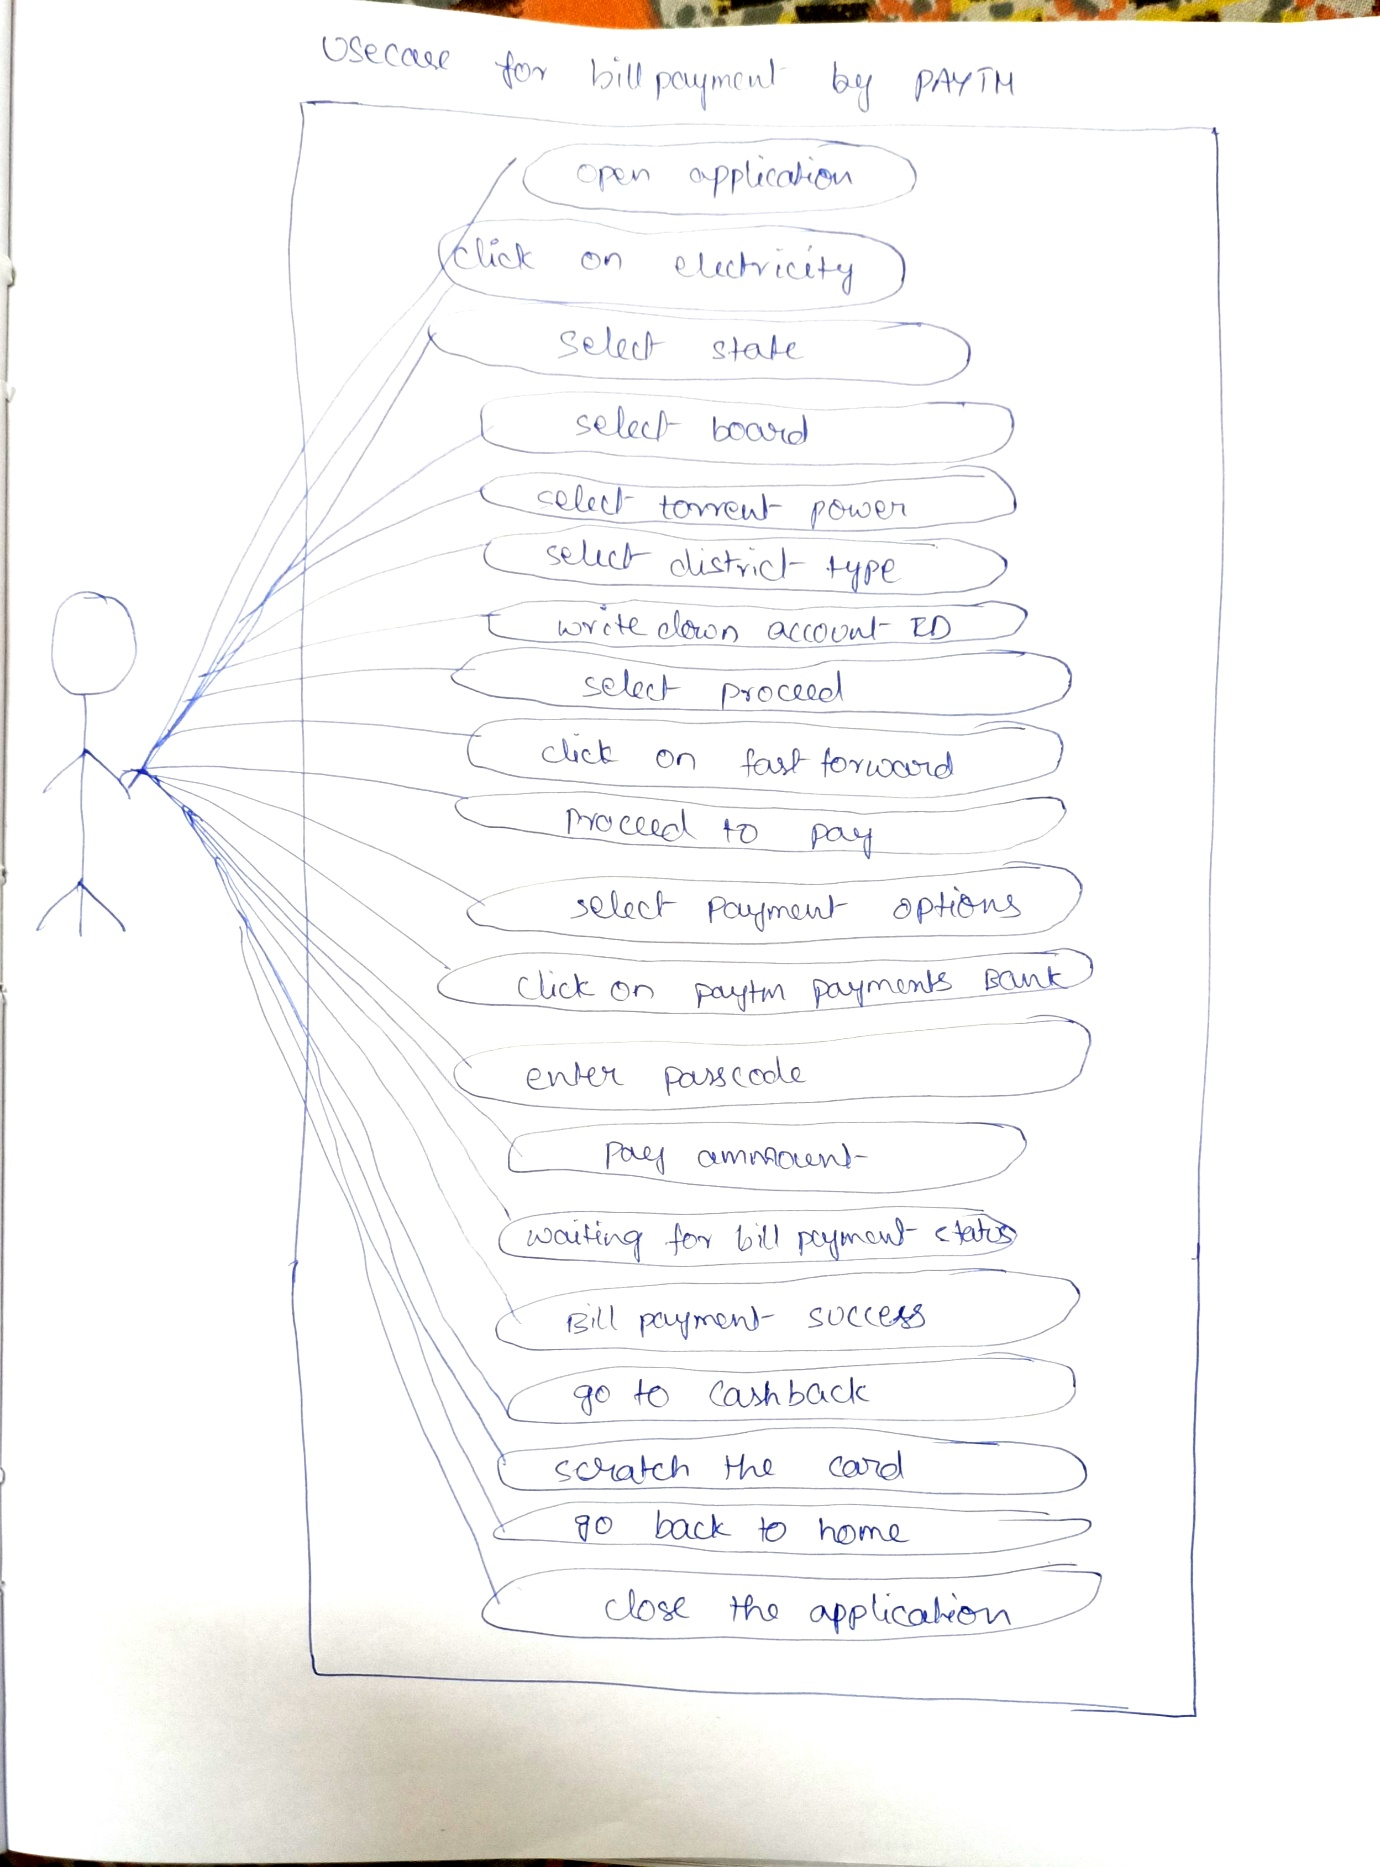 Usecase for bill payment by PAYTM
open application
click on electricity
select state
select board
select torrent power
select district type
write down account ID
select proceed
click on fast forward
proceed to pay
select payment options
click on paytm payments Bank
enter passcode
pay ammount
waiting for bill payment status
Bill payment success
go to cashback
scratch the card
go back to home
close the application